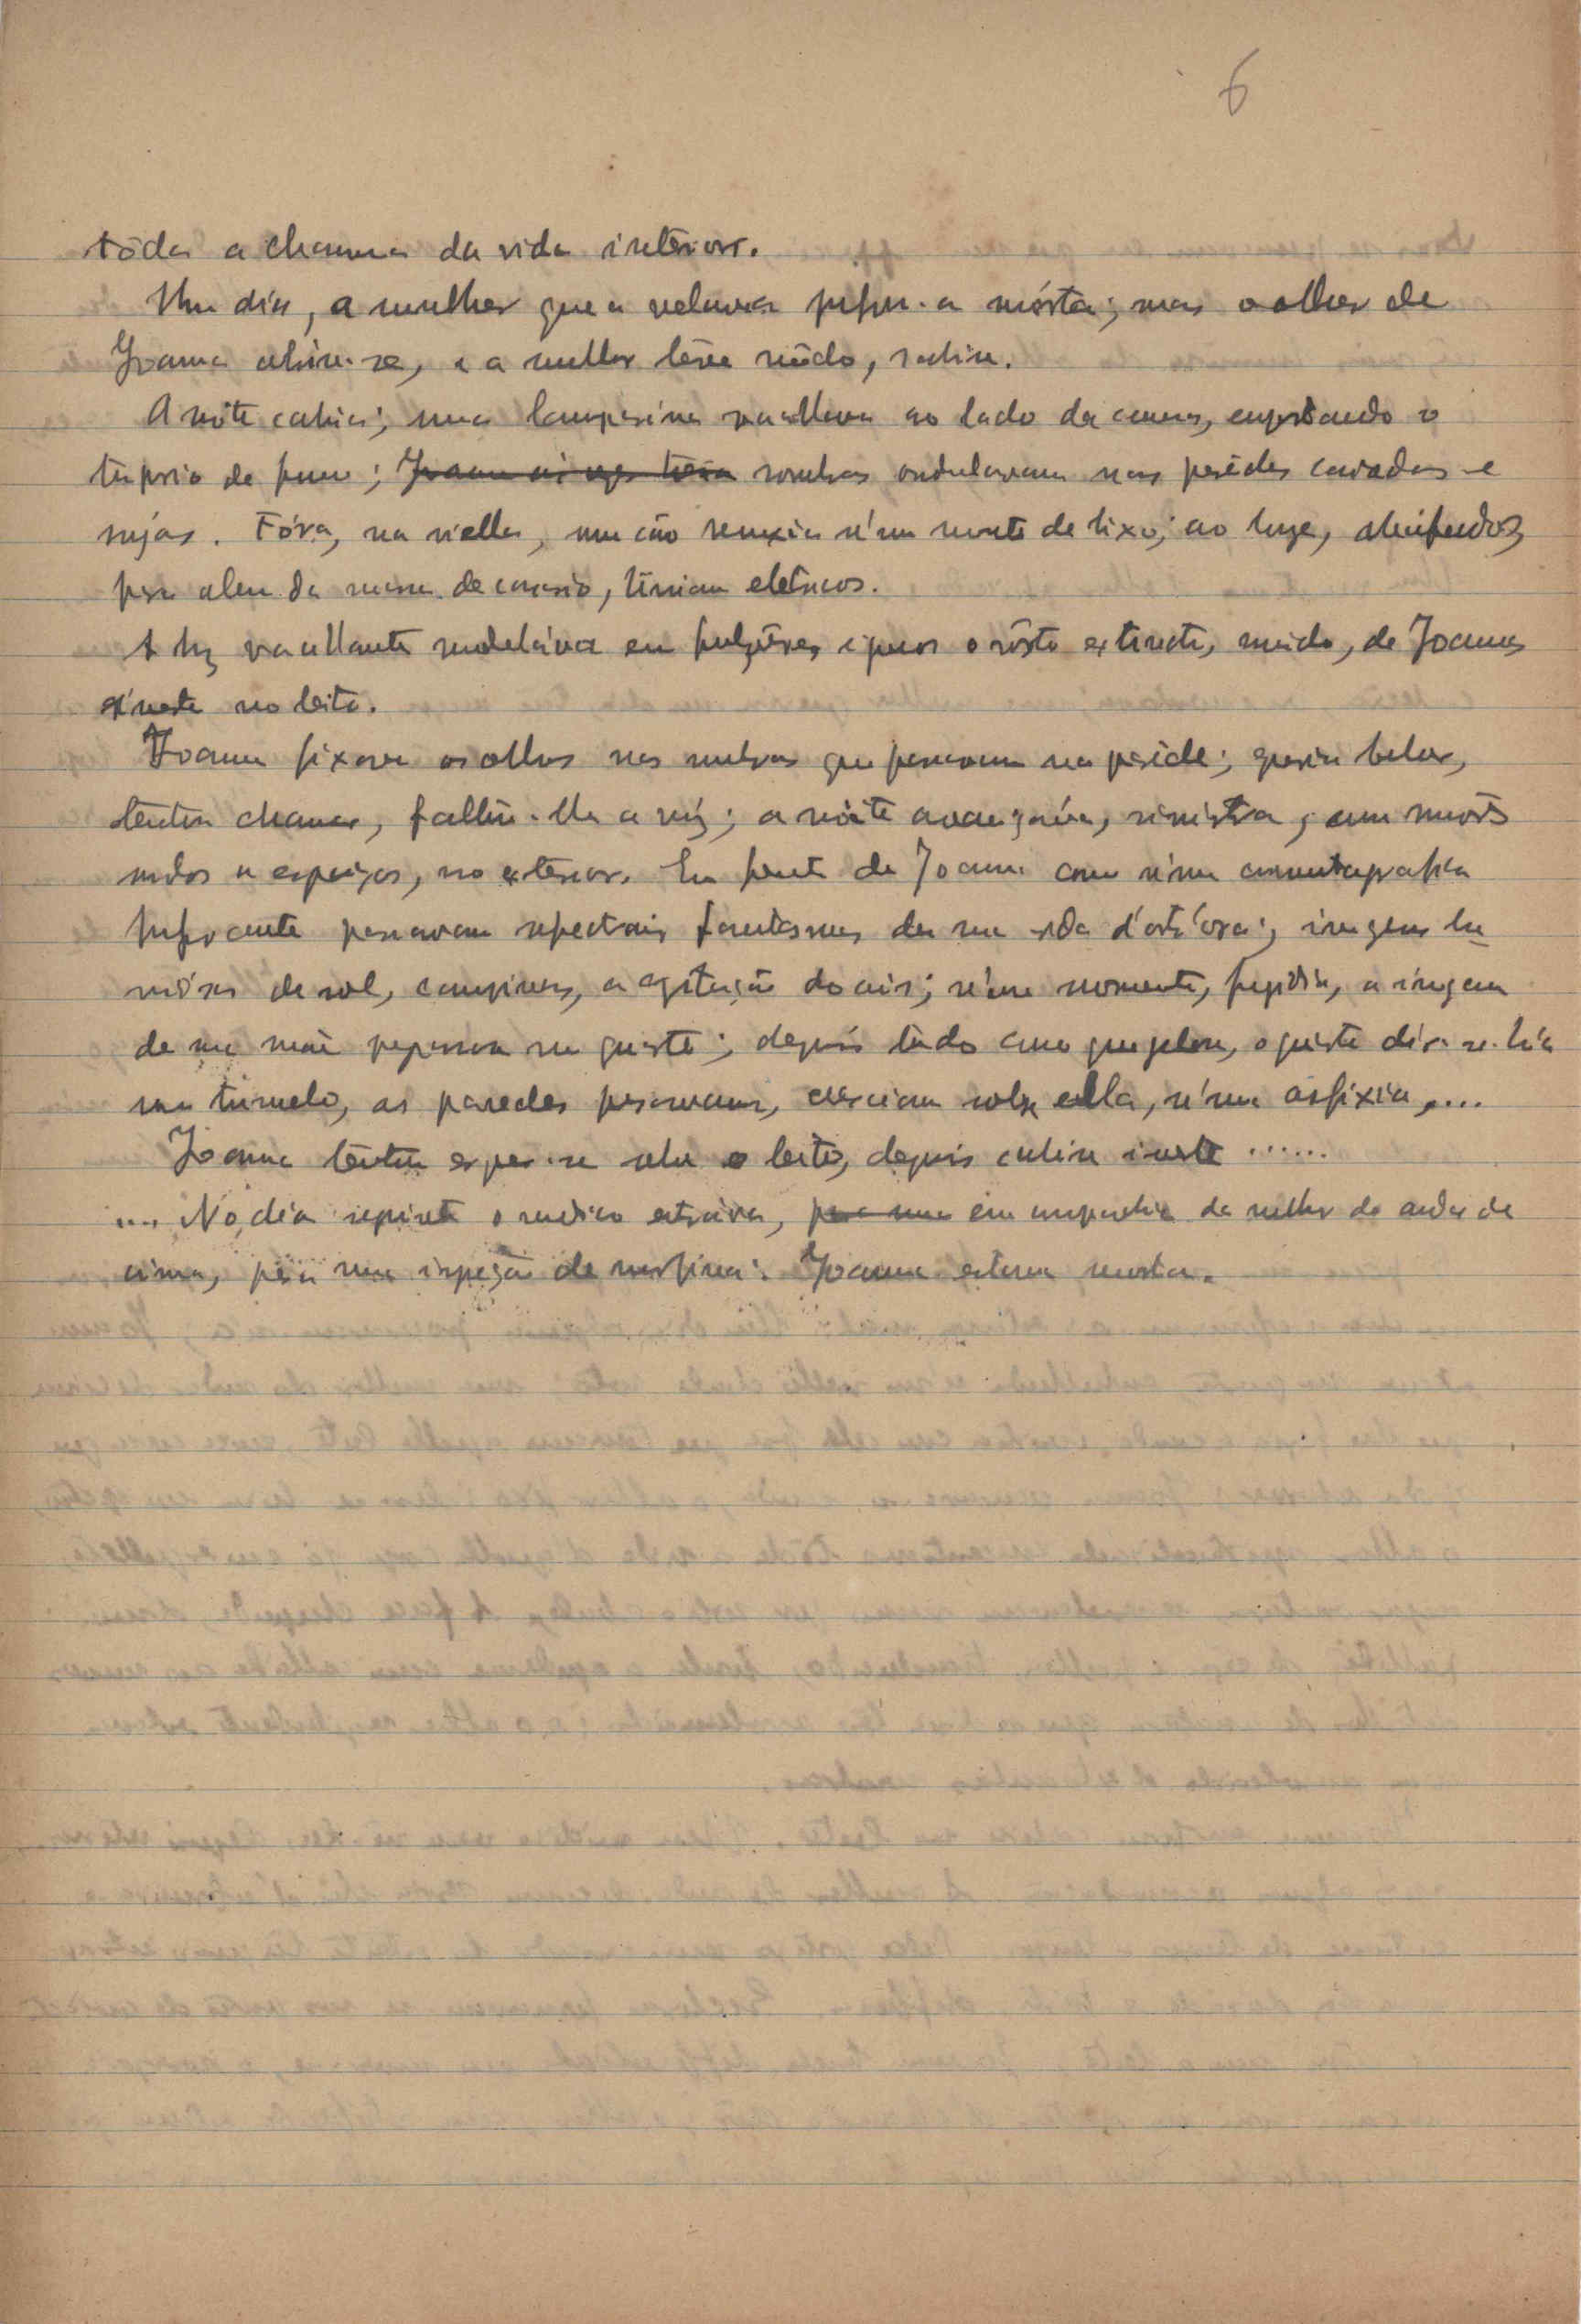 6
tôda a chamma da vida interior.
Um dia, a mulher que a velava julgou-a mórta; mas o olhar de
Joanna abriu-se, e a mulher teve mêdo, sahiu.
A noite cahia; uma lamparina vacillava ao lado da cama, enquanto o
de fumo; sombras ondulavam nas parêdes cavadas e
sujas. Fóra, na viella, um cão remexia n'um monte de lixo; ao longe, abafados,
para alem da massa de casario, tiniam eletricos.
A luz vacillante modelava em o rôsto extincto, de Joanna
inerte no leito.
Joanna fixava os olhos nas sombras que passavam na parêde; queria falar,
tentou chamar, faltou-lhe a voz; a noite avançava, sinistra, com
ruidos a espaços, no exterior. Em frente de Joanna como n'uma cinematographia
passavam espectrais fantasmas da sua vida d'outr'ora; imagens lu
minósas de sol, campinas, a agitação do cais; n'um momento, fugidia, a imagem
de sua mãe perpassou no quarto; depois tudo como que gelou, o quarto dir-se-hia
um tumulo, as paredes pesavam, cresciam sobre ella, n'uma asfixia, ....
Joanna tentou erguer-se sobre o leito, depois cahiu inerte ......
.... No dia seguinte o medico entrava, em companhia da mulher do andar de
cima, para uma injeção de morfina: Joanna estava morta.